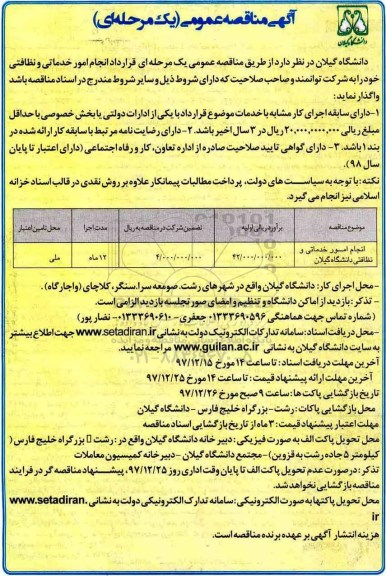 آگهی مناقصه عمومی (یک مرحله ای)
دانشگاه گیلان
دانشگاه گیلان در نظر دارد از طریق مناقصه عمومی یک مرحله ای قرارداد انجام امور خدماتی و نظافتی
خود را به شرکت توانمند و صاحب صلاحیت که دارای شروط ذیل و سایر شروط مندرج در اسناد مناقصه باشد
واگذار نماید:
۱- دارای سابقه اجرای کار مشابه با خدمات موضوع قرارداد با یکی از ادارات دولتی یا بخش خصوصی با حداقل
مبلغ ریالی ۲۰,۰۰۰,۰۰۰,۰۰۰ ریال در ۳ سال اخیر باشد. ۲- دارای رضایت نامه مرتبط با سابقه کار ارائه شده در
بند ۱ باشد. ۳- دارای گواهی تایید صلاحیت صادره از اداره تعاون، کار و رفاه اجتماعی (دارای اعتبار تا پایان
سال ۹۸).
نکته: با توجه به سیاست های دولت، پرداخت مطالبات پیمانکار علاوه بر روش نقدی در قالب اسناد خزانه
اسلامی نیز انجام می گیرد.
موضوع مناقصه برآورد ریالی اولیه تضمین شرکت در مناقصه به ریال مدت اجرا محل تامین اعتبار
انجام امور خدماتی و نظافتی دانشگاه گیلان ۴۲/۰۰۰/۰۰۰/۰۰۰ ۴/۰۰۰/۰۰۰/۰۰۰ ۱۲ ماه ملی
- محل اجرای کار: دانشگاه گیلان واقع در شهرهای رشت، صومعه سرا، سنگر، کلاچای (واجارگاه).
- تذکر: بازدید از اماکن دانشگاه و تنظیم و امضای صورتجلسه بازدید الزامی است.
(شماره تماس جهت هماهنگی ۰۱۳۳۳۶۹۰۵۹۶ جعفری - ۰۱۳۳۳۶۹۰۶۱۰ نصار پور)
- محل دریافت اسناد: سامانه تدارکات الکترونیک دولت به نشانی www.setadiran.ir جهت اطلاع بیشتر
به سایت دانشگاه گیلان به نشانی www.guilan.ac.ir مراجعه نمایید.
آخرین مهلت دریافت اسناد: تا ساعت ۱۴ مورخ ۹۷/۱۲/۱۵
آخرین مهلت ارائه پیشنهاد قیمت: تا ساعت ۱۴ مورخ ۹۷/۱۲/۲۵
تاریخ بازگشایی پاکت ها: ساعت ۹ صبح مورخ ۹۷/۱۲/۲۶
محل بازگشایی پاکات: رشت - بزرگراه خلیج فارس - دانشگاه گیلان
مهلت اعتبار پیشنهاد قیمت: ۳ ماه از تاریخ بازگشایی اسناد مناقصه
محل تحویل پاکت الف به صورت فیزیکی: دبیر خانه دانشگاه گیلان واقع در: رشت بزرگراه خلیج فارس (
کیلومتر ۵ جاده رشت به قزوین) - مجتمع دانشگاه گیلان - دبیرخانه کمیسیون معاملات
تذکر: در صورت عدم تحویل پاکت الف تا پایان وقت اداری روز ۹۷/۱۲/۲۵، پیشنهاد مناقصه گر در فرایند
مناقصه بازگشایی نخواهد شد.
محل تحویل پاکتها به صورت الکترونیکی: سامانه تدارک الکترونیکی دولت به نشانی www.setadiran.
ir
هزینه انتشار آگهی بر عهده برنده مناقصه است.